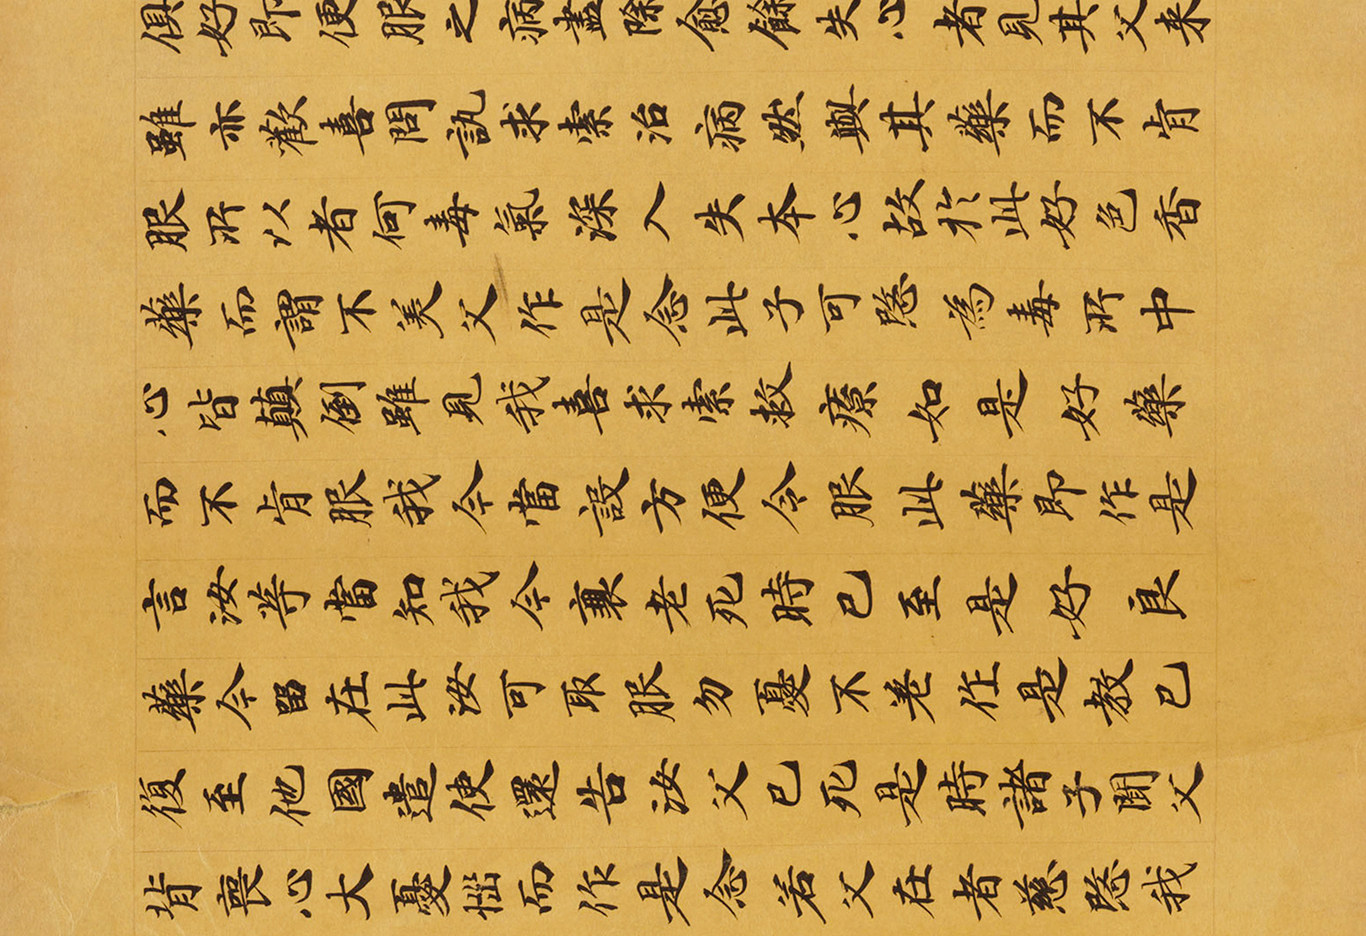 俱好即便服之病盡除愈餘失心者見其父来
雖亦歡喜問訊求索治病然與其藥而不肯
服所以者何毒氣深入失本心故於此好色香
藥而謂不美父作是念此子可愍為毒所中
心皆顛倒雖見我喜求索救療如是好藥
而不肯服我今當設方便令服此藥即作是
言汝等當知我今衰老死時已至是好良
藥今留在此汝可取服勿憂不差作是教已
復至他國遣使還告汝父已死是時諸子聞父
背喪心大憂惱而作是念若父在者慈愍我